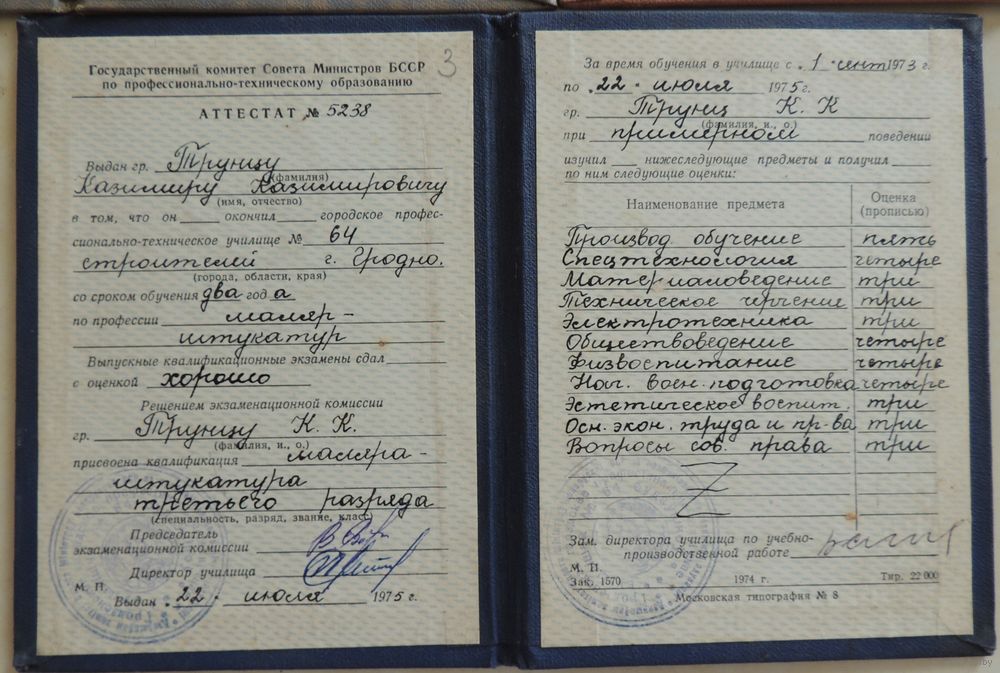 3
Государственный комитет Совета Министров БССР
по профессионально-техническому образованию
АТТЕСТАТ № 5238
Выдан гр. Трунцу
(фамилия)
Казимиру Казимировичу
(имя, отчество)
в том, что он окончил городское профес-
сионально-техническое училище № 64
строителей г. Гродно.
(города, области, края)
со сроком обучения два года
по профессии маляр-
штукатур
Выпускные квалификационные экзамены сдал
с оценкой хорошо
Решением экзаменационной комиссии
гр. Трунцу К. К.
(фамилия, и., о.)
присвоена квалификация маляра-
штукатура
третьего разряда
(специальность, разряд, звание, класс)
Председатель
экзаменационной комиссии
Директор училища
М. П.
Выдан „22" июля 1975 г.
За время обучения в училище с „1" сент 1973 г.
по „22" июля 1975 г.
гр. Трунц К. К
(фамилия, и., о.)
при примерном поведении
изучил нижеследующие предметы и получил
по ним следующие оценки:
Наименование предмета Оценка (прописью)
Производ обучение пять
Спецтехнология четыре
Материаловедение три
Техническое черчение три
Электротехника три
Обществоведение четыре
Физвоспитание четыре
Нач. воен. подготовка четыре
Эстетическое воспит. три
Осн. экон. труда и пр-ва три
Вопросы сов. права три
Z
Зам. директора училища по учебно-
производственной работе
М. П.
Зак. 1570 1974 г. Тир. 22 000
Московская типография № 8